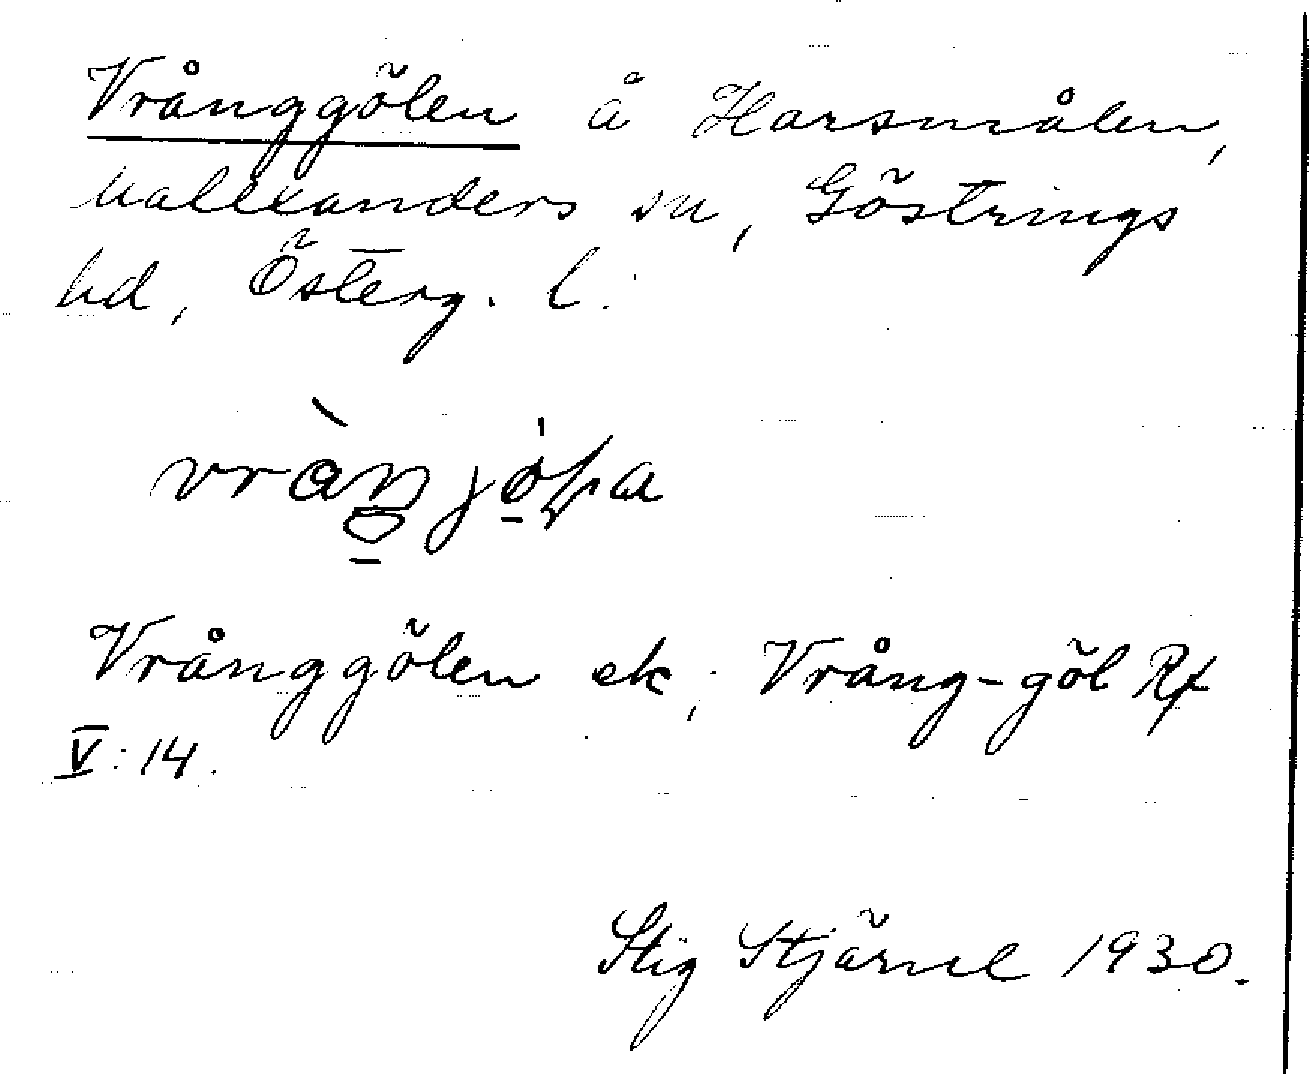 Vrånggölen å Harsmålen,
Malexanders sn, Göstrings
hd, Österg. l.
Vrånggölen ek; Vrång-göl Rf
V:14.
Stig Stjärne 1930.